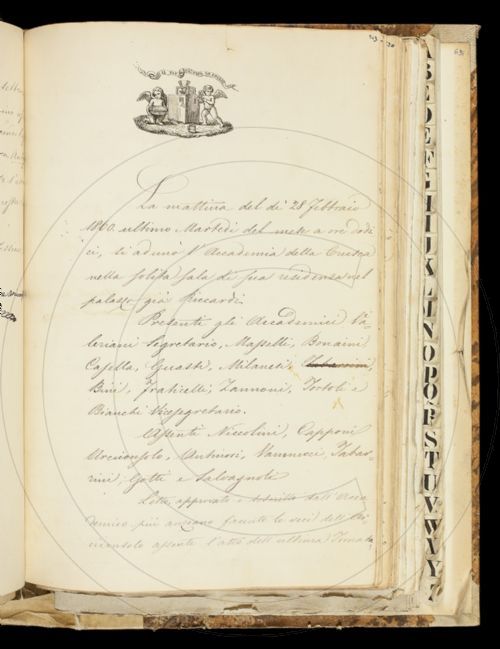 La mattina del dì 28 Febbraio
1860 ultimo Martedì del mese a ore dodi
ci, si adunò l'Accademia della Crusca
nella solita sala di sua residenza nel
palazzo già Riccardi.
Presenti gli Accademici Va-
leriani Segretario, Masselli, Bonaini
Casella, Guasti, Milanesi, Tabarrini,
Bini, Fraticelli, Zannoni, Tortoli e
Bianchi Vicesegretario.
Assenti Niccolini, Capponi
Arciconsolo, Vannucci, Tabar-
rini, Gotti e Salvagnoli
Letto, approvato e dall'Acca
demico più anziano facente le veci dell'Ar
ciconsolo assente l'atto dell'ultima Tornata,
A
B
C
D
E
F
G
H
I
J
K
L
M
N
O
P
Q
R
S
T
U
V
W
X
Y
Z